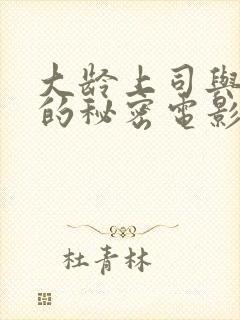 大龄上司與
的秘密电影
杜青林